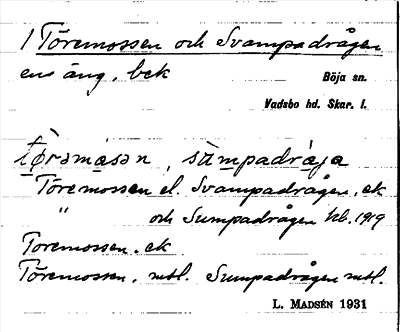 1 Töremossen och Svampadrågen
ens äng, bek
Böja sn.
Vadsbo hd. Skar. l.
tørsmåsən, sùmpadråja
Töremossen el. Svampadrågen, ek
" och Sumpadrågen hl. 1919
Toremossen. ek
Töremossen, mtl. Sumpadrågen mtl.
L. MADSÉN 1931